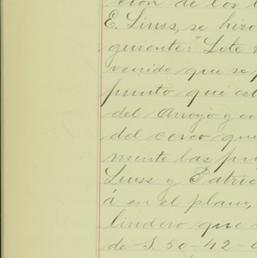 ción de los l
E. Luss, se hizo
guiente: "Lote
venido que se p
punto que est
del Arroyo y c
del cerco que
mente las pri
Luss y Patric
á en el plano,
lindero que
de S. 50-42-